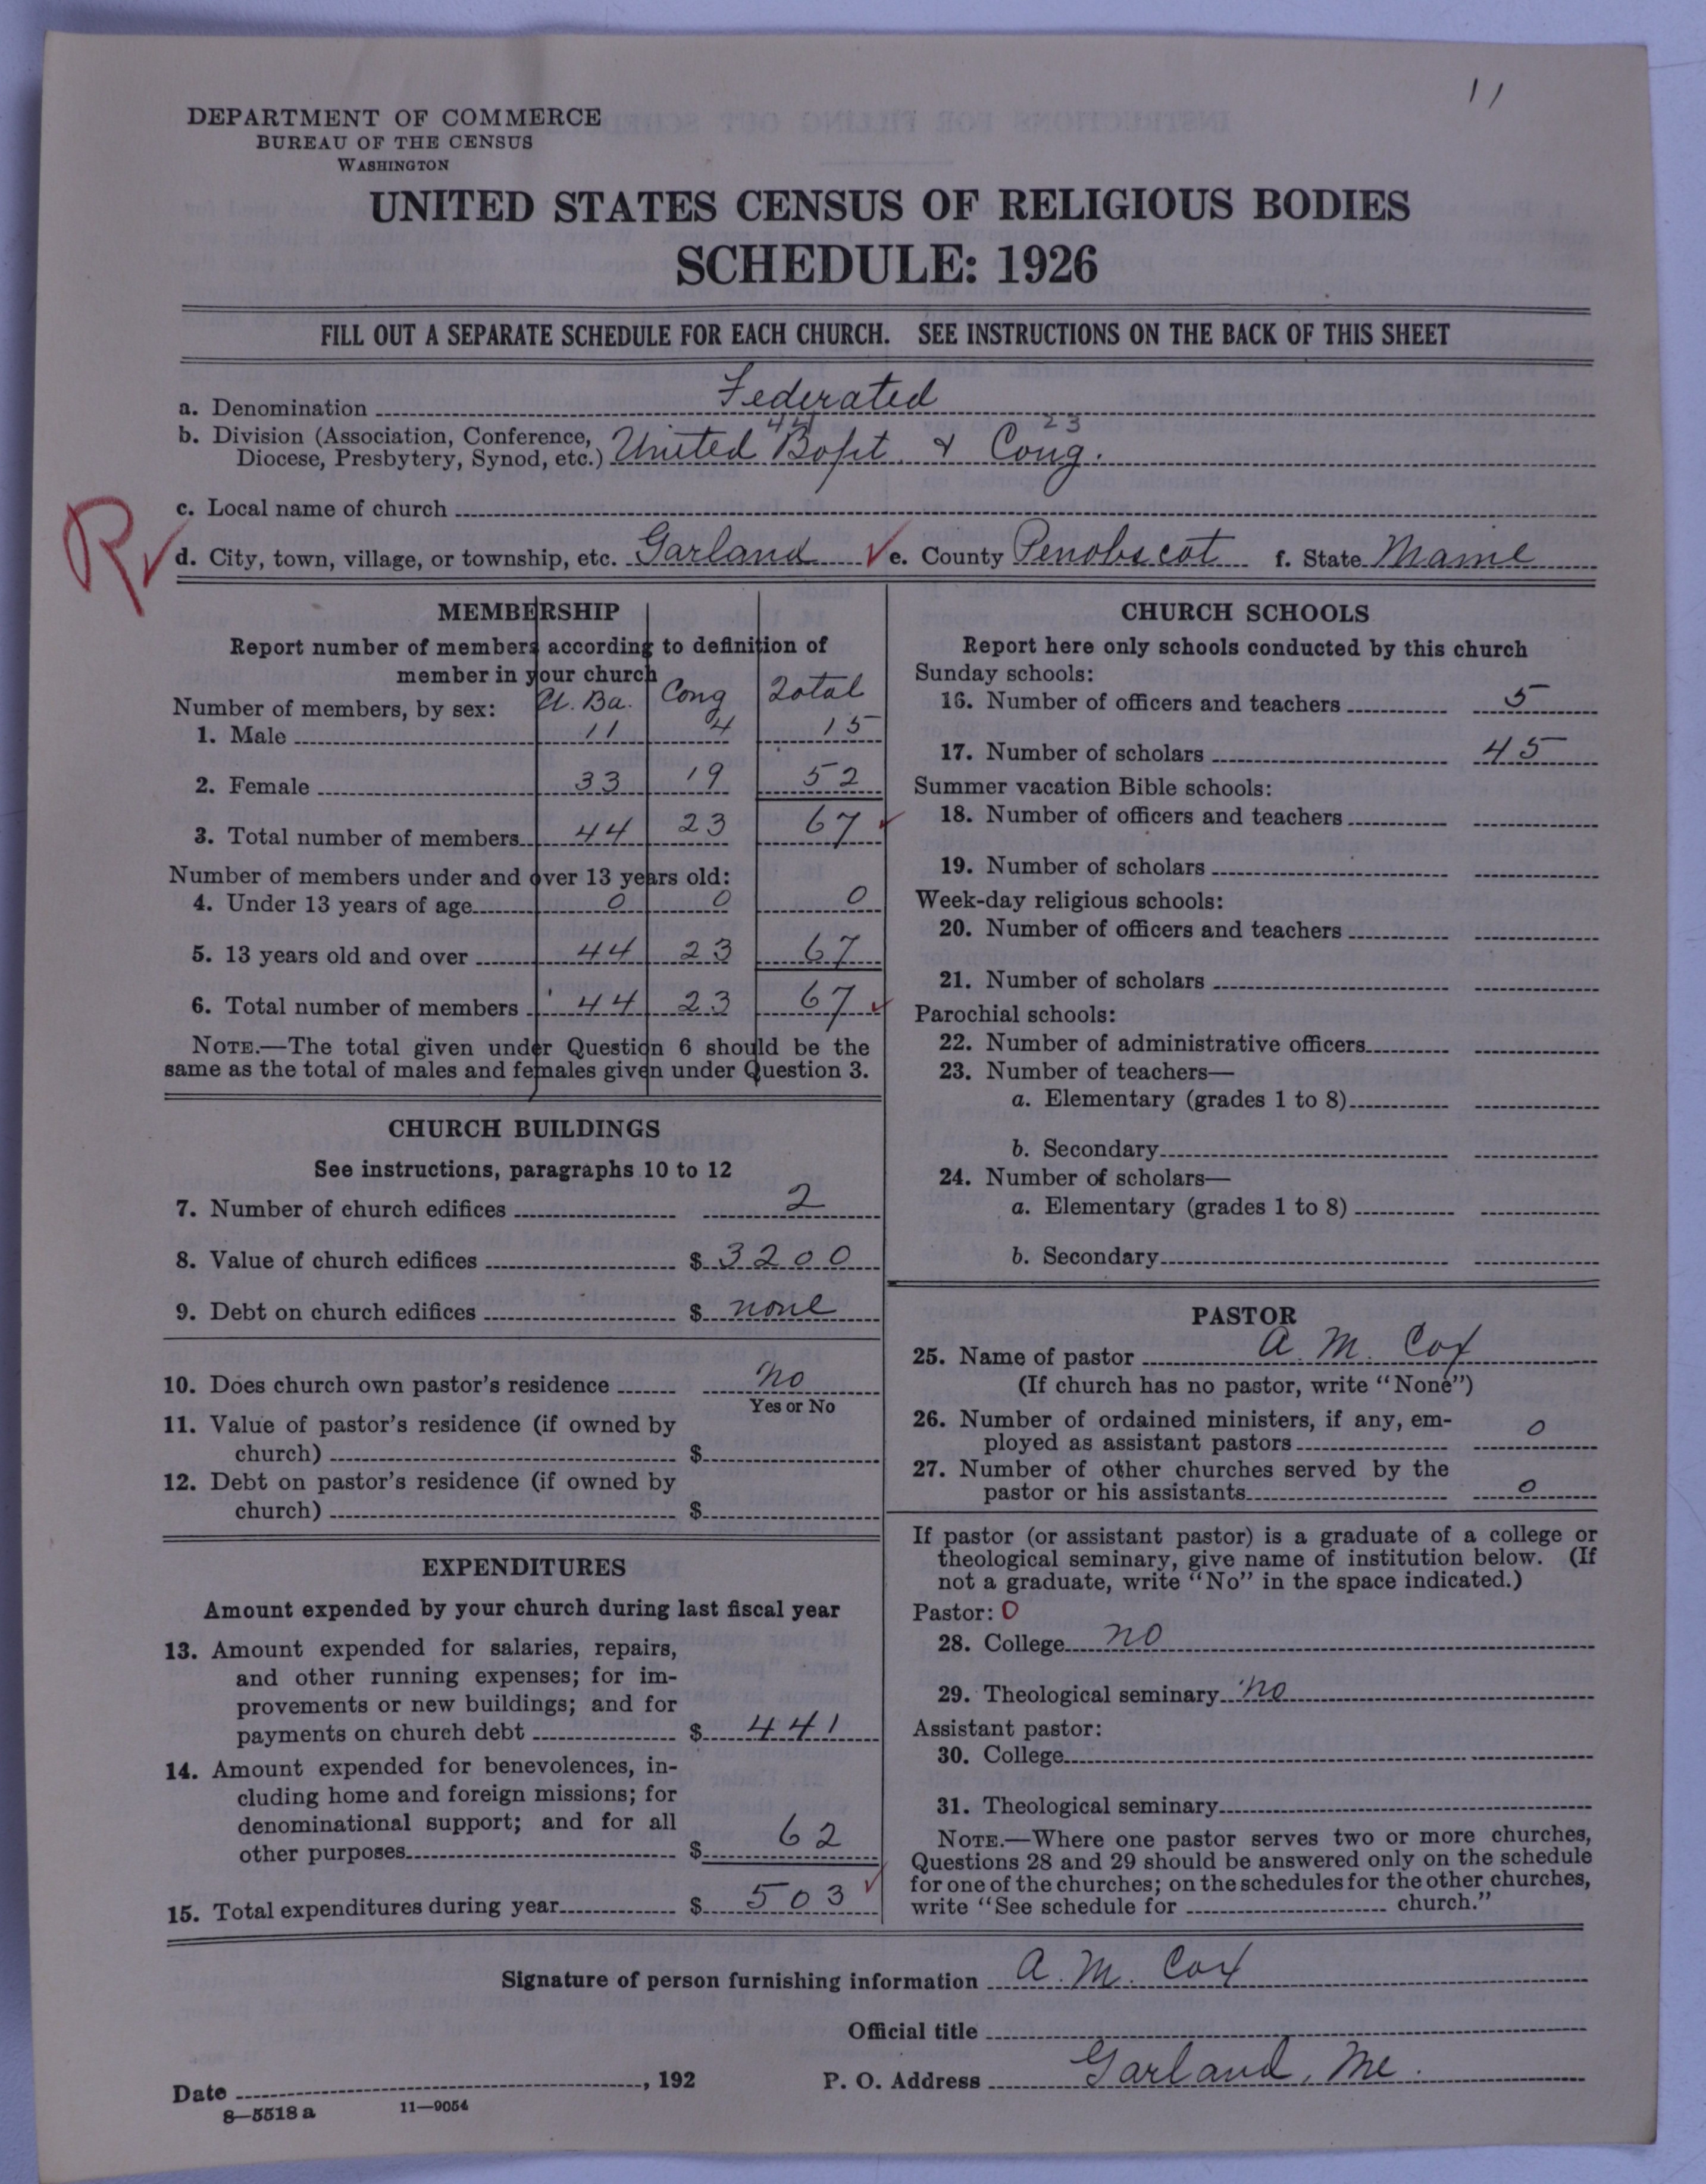 11
DEPARTMENT OF COMMERCE
BUREAU OF THE CENSUS
WASHINGTON
UNITED STATES CENSUS OF RELIGIOUS BODIES
SCHEDULE: 1926
FILL OUT A SEPARATE SCHEDULE FOR EACH CHURCH. SEE INSTRUCTIONS ON THE BACK OF THIS SHEET
a. Denomination Federated
44 23
b. Division (Association, Conference,
Diocese, Presbytery, Synod, etc.) United Bapt. & Cong.
c. Local name of church
R
d. City, town, village, or township, etc. Garland e. County Penobscot f. State Maine
MEMBERSHIP
Report number of members according to definition of
member in your church
U. Ba. Cong Total
Number of members, by sex:
1. Male 11 4 15
2. Female 33 19 52
3. Total number of members 44 23 67
Number of members under and over 13 years old:
4. Under 13 years of age 0 0 0
5. 13 years old and over 44 23 67
6. Total number of members 44 23 67
NOTE.—The total given under Question 6 should be the
same as the total of males and females given under Question 3.
CHURCH BUILDINGS
See instructions, paragraphs 10 to 12
7. Number of church edifices 2
8. Value of church edifices $ 3200
9. Debt on church edifices $ none
10. Does church own pastor's residence No
Yes or No
11. Value of pastor's residence (if owned by
church) $
12. Debt on pastor's residence (if owned by
church) $
EXPENDITURES
Amount expended by your church during last fiscal year
13. Amount expended for salaries, repairs,
and other running expenses; for im-
provements or new buildings; and for
payments on church debt $ 441
14. Amount expended for benevolences, in-
cluding home and foreign missions; for
denominational support; and for all
other purposes $ 62
15. Total expenditures during year $ 503
CHURCH SCHOOLS
Report here only schools conducted by this church
Sunday schools:
16. Number of officers and teachers 5
17. Number of scholars 45
Summer vacation Bible schools:
18. Number of officers and teachers
19. Number of scholars
Week-day religious schools:
20. Number of officers and teachers
21. Number of scholars
Parochial schools:
22. Number of administrative officers
23. Number of teachers—
a. Elementary (grades 1 to 8)
b. Secondary
24. Number of scholars—
a. Elementary (grades 1 to 8)
b. Secondary
PASTOR
25. Name of pastor A. M. Cox
(If church has no pastor, write "None")
26. Number of ordained ministers, if any, em-
ployed as assistant pastors 0
27. Number of other churches served by the
pastor or his assistants 0
If pastor (or assistant pastor) is a graduate of a college or
theological seminary, give name of institution below. (If
not a graduate, write "No" in the space indicated.)
Pastor: 0
28. College no
29. Theological seminary no
Assistant pastor:
30. College
31. Theological seminary
NOTE.—Where one pastor serves two or more churches,
Questions 28 and 29 should be answered only on the schedule
for one of the churches; on the schedules for the other churches,
write "See schedule for church."
Signature of person furnishing information A. M. Cox
Official title
Date , 192 P. O. Address Garland, Me.
8—5518 a 11—9054